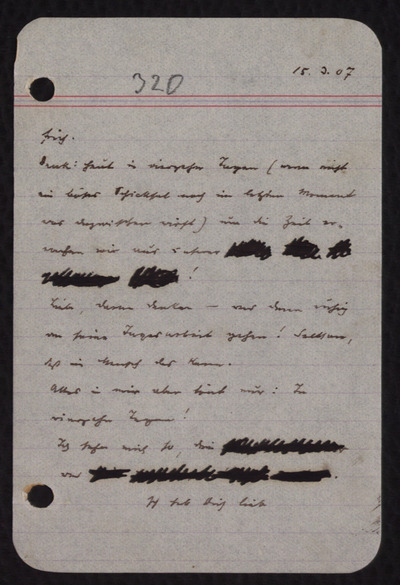 320
15.3.07
früh.
Denk: heut in vierzehn Tagen (wenn nicht
ein böses Schicksal noch im letzten Moment
was dazwischen wirft) um die Zeit er-
wachen wir aus
!
Lieb, daran denken — und dann ruhig
an seine Tagesarbeit gehen! Seltsam,
daß ein Mensch das kann.
Alles in mir aber singt nur: In
vierzehn Tagen!
Ich sehn mich so, dein
und
Ich hab Dich lieb